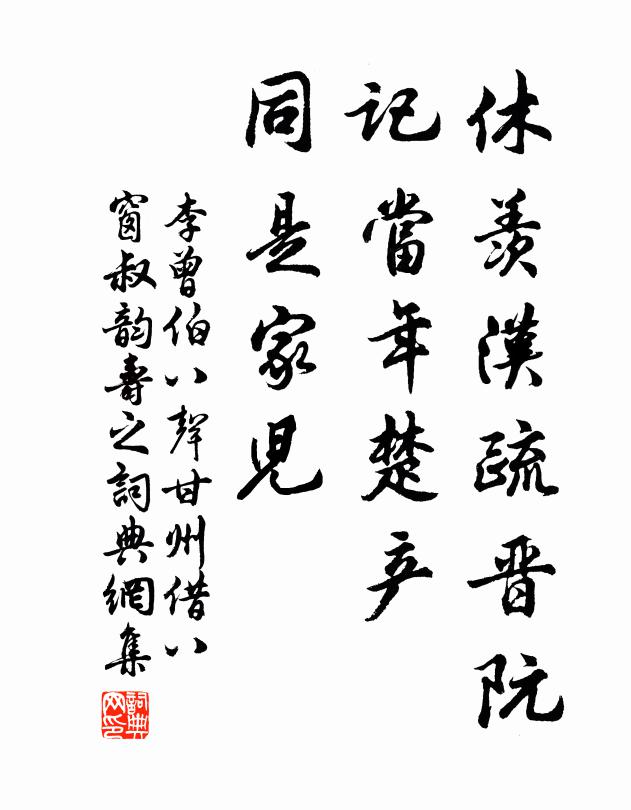 休羨漢疏晋阮
記當年楚产
同是家児
李曾伯八聲甘州借八
窗叔韵壽之詞典網集
詞典网印